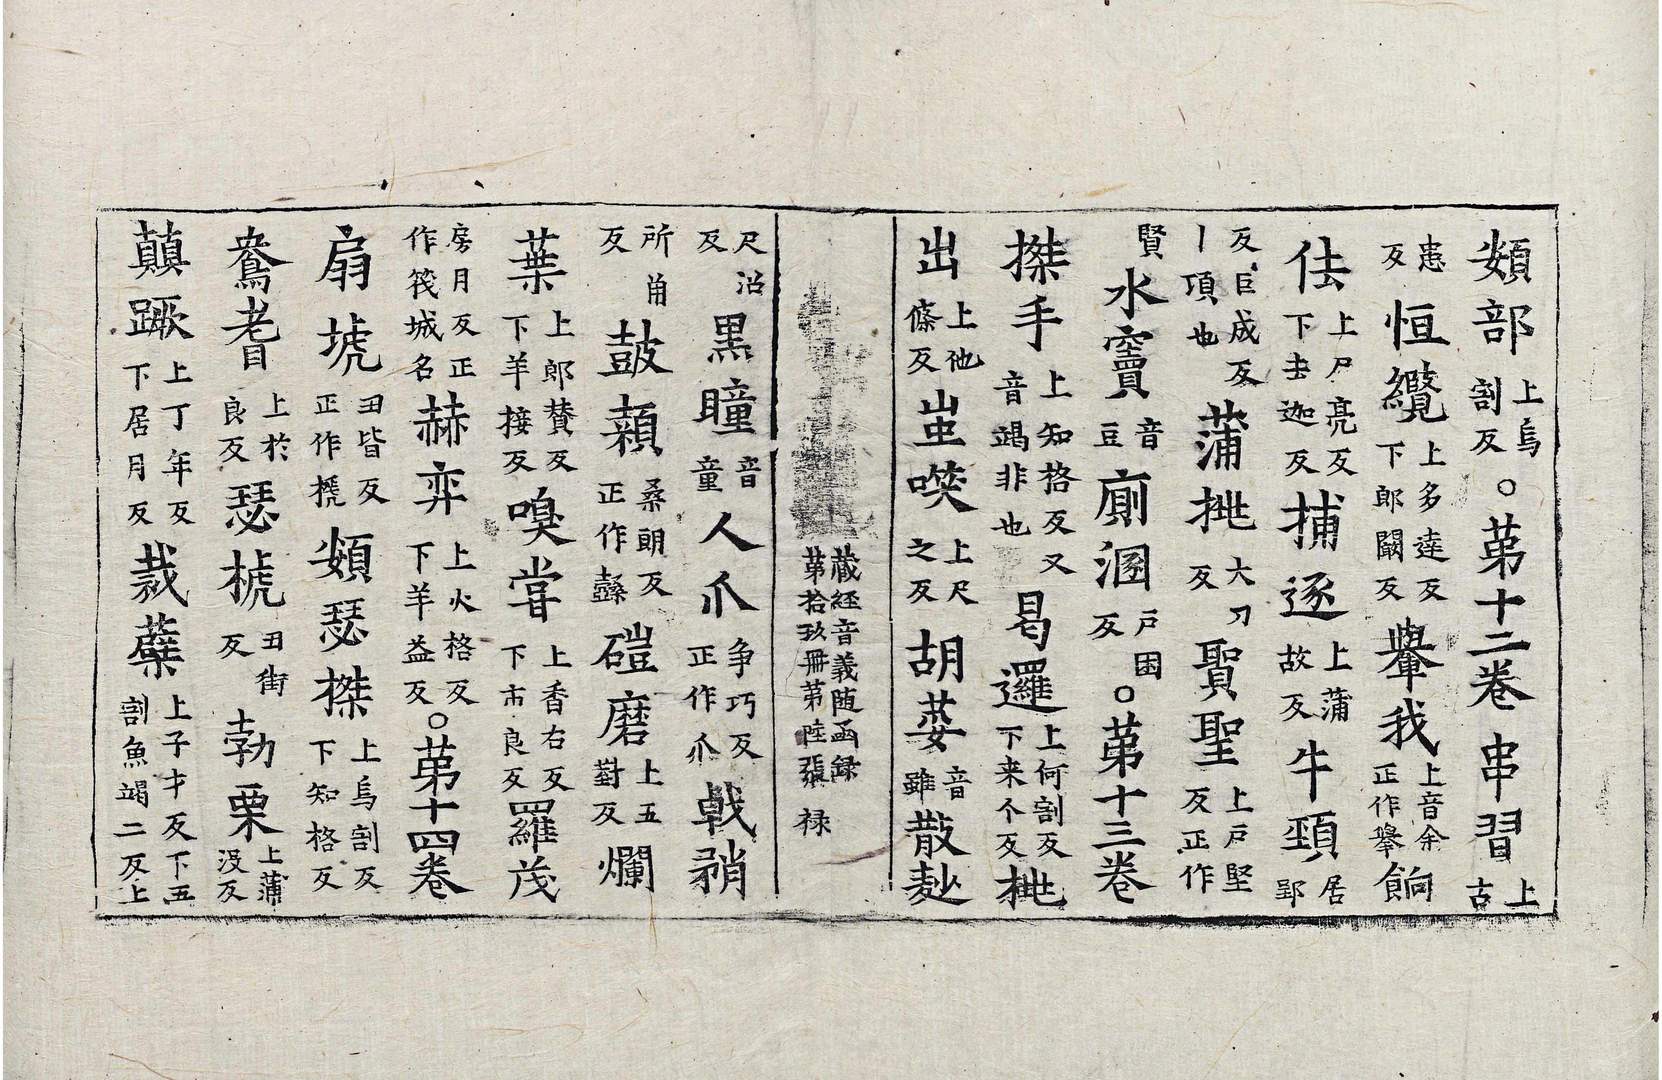 頞部上烏割反〇苐十二卷串習上古
患反恒纜上多達反下郎闞反轝我上音余正作轝餉
佉上尸亮反下去迦反捕逐上蒲故反牛頸居郢
反巨成反丨項也蒲桃大刀反賢聖上戸堅反正作
賢水竇音豆廁溷戸困反〇苐十三卷
搩手上知格反又音竭非也曷邏上何割反下来个反桃
出上他條反蚩㗛上尺之反胡荽音雖散麨
藏經音義随函録
苐拾玖冊苐陸張 禄
尺沼反黒瞳音童人爪争巧反正作爪戟矟
所角反鼓顙桑朗反正作磉磑磨上五對反爛
葉上郎贊反下羊接反嗅甞上香右反下市良反羅茂
房月反正作筏城名赫弈上火格反下羊益反〇苐十四卷
扇搋丑皆反正作搋頞瑟搩上烏割反下知格反
鴦耆上於良反瑟搋丑街反勃栗上蒲没反
蘱蹶上丁年反下居月反裁蘖上子才反下五割魚竭二反上